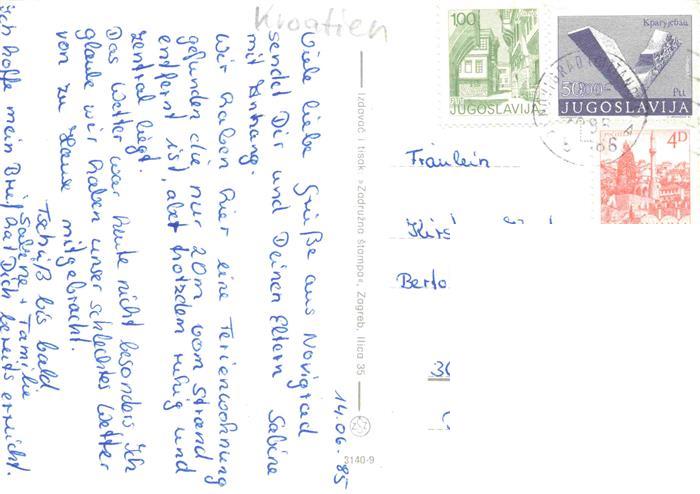 Kroatien
14.06.85
Viele liebe Grüße aus Novigrad
sendet Dir und Deinen Eltern Sabine
mit Anhang.
Wir haben hier eine Ferienwohnung
gefunden die nur 20m vom Strand
entfernt ist, aber trotzdem ruhig und
zentral liegt.
Das Wetter war heute nicht besonders. Ich
glaube wir haben unser schlechtes Wetter
von zu Hause mitgebracht.
Tschüß bis bald
Sabine + Familie
Ich hoffe mein Brief hat Dich bereits erreicht.
Izdavač i tisak »Zadružna štampa«, Zagreb, Ilica 35
3140-9
100
JUGOSLAVIJA
Крагујевац
JUGOSLAVIJA
4D
Fräulein
Kirs
Berto